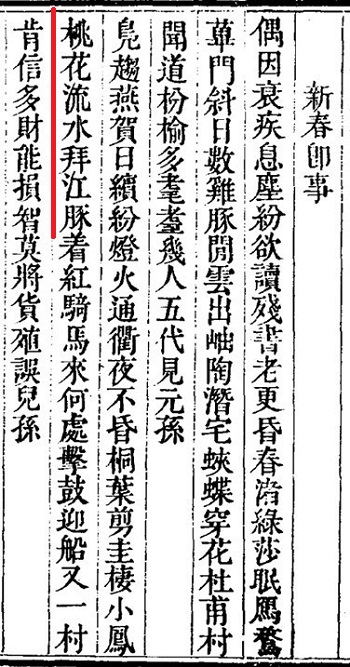 新春即事
偶因衰疾息塵紛欲讀殘書老更昏春渚綠莎眠鴈鶩
蓽門斜日數雞豚閒雲出岫陶潛宅蛺蝶穿花杜甫村
聞道枌榆多耄耋幾人五代見元孫
鳬趨燕賀日繽紛燈火通衢夜不昏桐葉剪圭棲小鳳
桃花流水拜江豚着紅騎馬來何處擊鼓迎船又一村
肯信多財能損智莫將貨殖誤兒孫